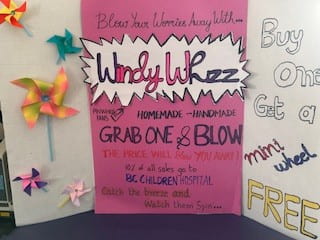 Blow Your Worries Away With...
Windy Whizz
HOMEMADE - HANDMADE
GRAB ONE & BLOW
THE PRICE WILL Blow YOU AWAY!
10% of all sales go to
BC CHILDREN HOSPITAL
Catch the breeze and
Watch them Spin...
Buy
One
Get a
mini
wheel
FREE